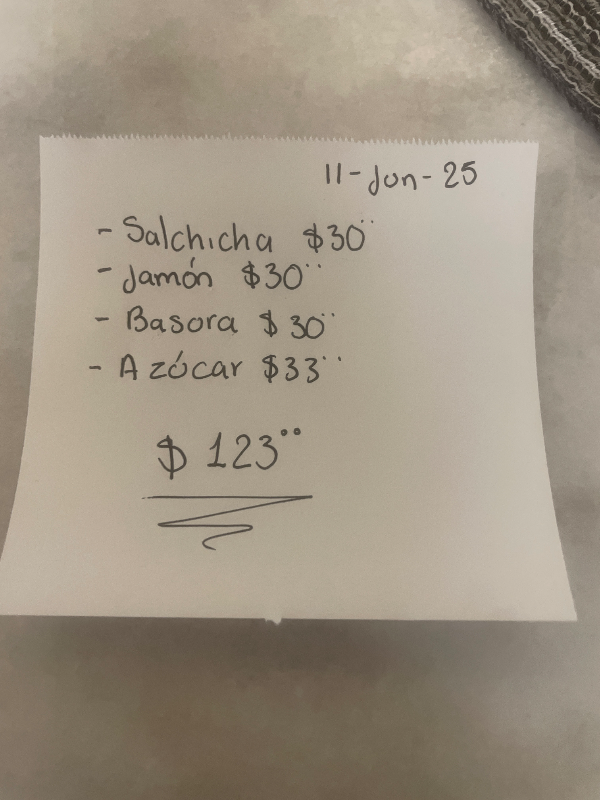 11-Jun-25
- Salchicha $30¨
- Jamón $30¨
- Basora $30¨
- Azócar $33¨
$ 123°°